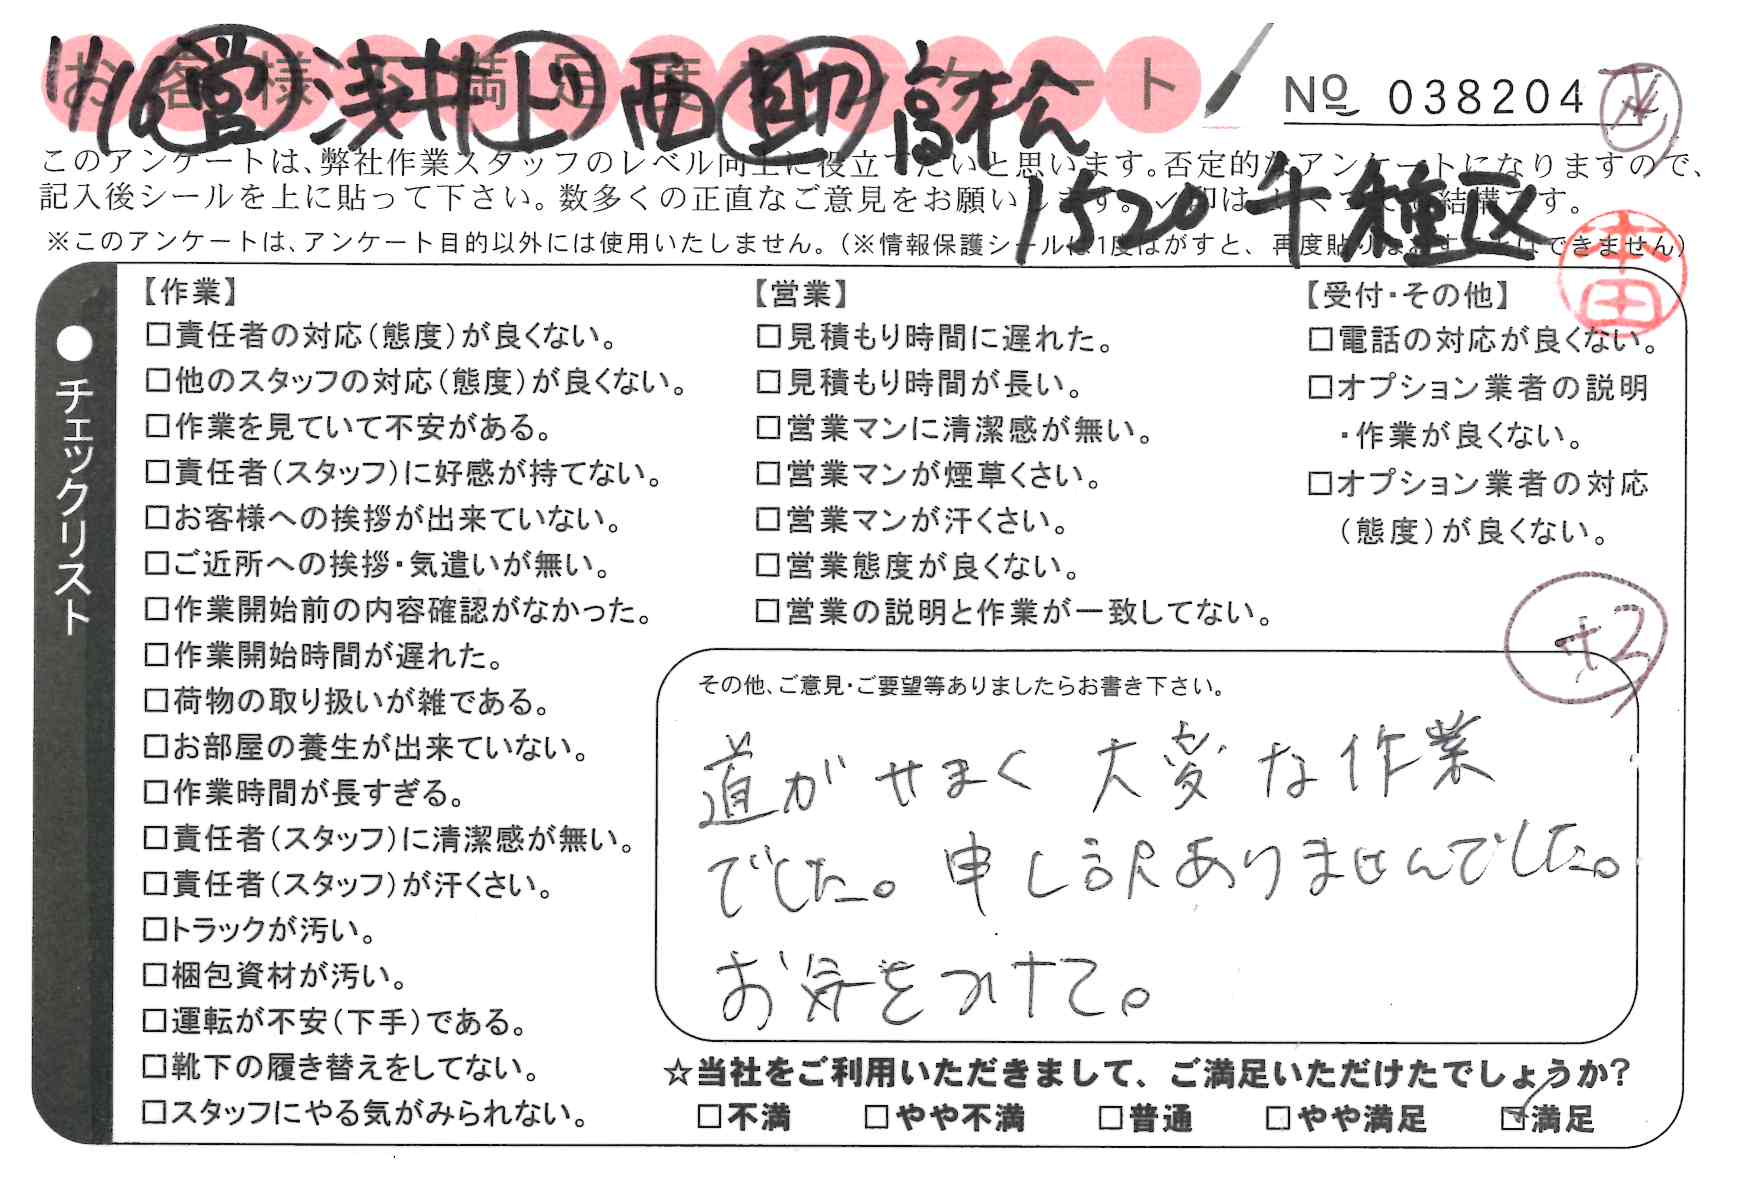 お客様不満足度アンケート
11/6 営 浅井 上 西 助 高松
No 038204
このアンケートは、弊社作業スタッフのレベル向上に役立てたいと思います。否定的なアンケートになりますので、
記入後シールを上に貼って下さい。数多くの正直なご意見をお願いします。✓印はいくつでも結構です。
1520 千種区
※このアンケートは、アンケート目的以外には使用いたしません。(※情報保護シールは1度はがすと、再度貼りなおすことはできません)
本田
●チェックリスト
【作業】
□責任者の対応(態度)が良くない。
□他のスタッフの対応(態度)が良くない。
□作業を見ていて不安がある。
□責任者(スタッフ)に好感が持てない。
□お客様への挨拶が出来ていない。
□ご近所への挨拶・気遣いが無い。
□作業開始前の内容確認がなかった。
□作業開始時間が遅れた。
□荷物の取り扱いが雑である。
□お部屋の養生が出来ていない。
□作業時間が長すぎる。
□責任者(スタッフ)に清潔感が無い。
□責任者(スタッフ)が汗くさい。
□トラックが汚い。
□梱包資材が汚い。
□運転が不安(下手)である。
□靴下の履き替えをしてない。
□スタッフにやる気がみられない。
【営業】
□見積もり時間に遅れた。
□見積もり時間が長い。
□営業マンに清潔感が無い。
□営業マンが煙草くさい。
□営業マンが汗くさい。
□営業態度が良くない。
□営業の説明と作業が一致してない。
【受付・その他】
□電話の対応が良くない。
□オプション業者の説明
・作業が良くない。
□オプション業者の対応
(態度)が良くない。
+3
その他、ご意見・ご要望等ありましたらお書き下さい。
道がせまく大変な作業
でした。申し訳ありませんでした。
お気をつけて。
☆当社をご利用いただきまして、ご満足いただけたでしょうか?
□不満 □やや不満 □普通 □やや満足 ☑満足